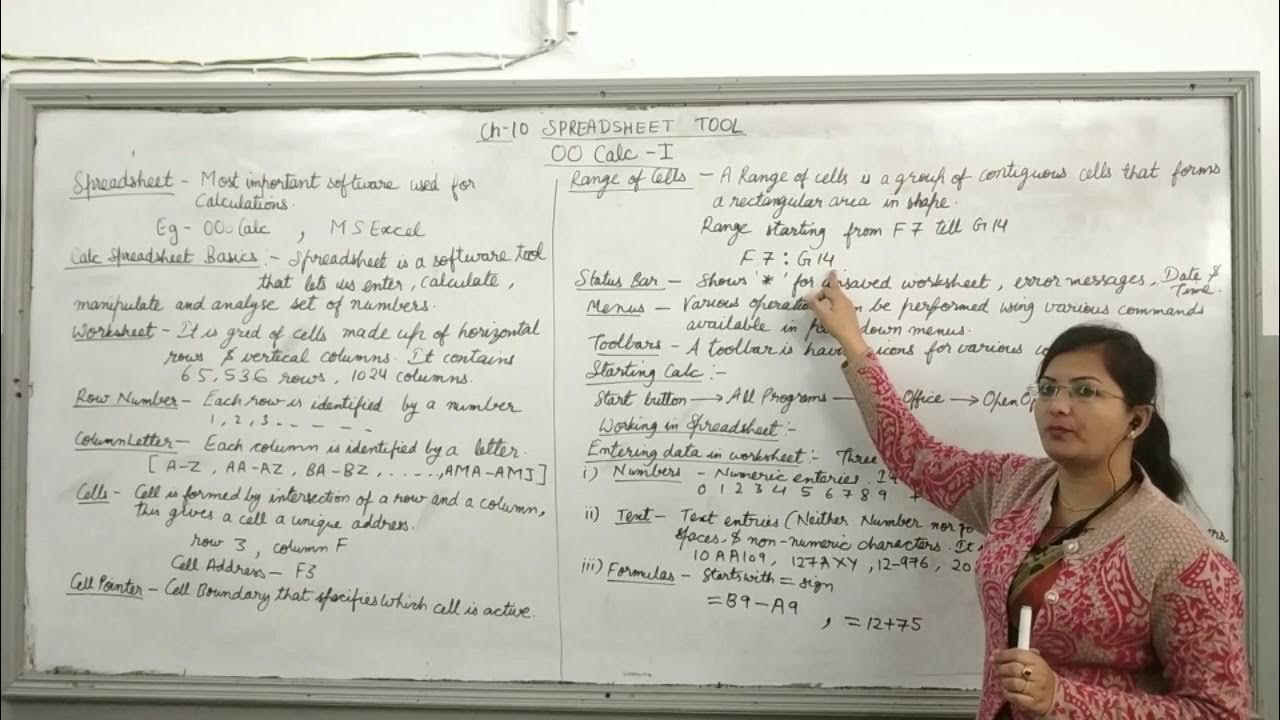 Ch-10 SPREADSHEET TOOL
OO Calc -I
Spreadsheet - Most important software used for
Calculations.
Eg- OO Calc , MS Excel
Calc Spreadsheet Basics :- Spreadsheet is a software tool
that lets us enter, calculate,
manipulate and analyse set of numbers.
Worksheet - It is grid of cells made up of horizontal
rows & vertical columns. It contains
65,536 rows, 1024 columns.
Row Number - Each row is identified by a number
1, 2, 3 - - - - -
Column Letter - Each column is identified by a letter.
[ A-Z , AA-AZ, BA-BZ , ......, AMA-AMJ ]
Cells - Cell is formed by intersection of a row and a column,
this gives a cell a unique address.
row 3 , column F
Cell Address - F3
Cell Pointer - Cell Boundary that specifies which cell is active.
Range of Cells - A Range of cells is a group of contiguous cells that forms
a rectangular area in shape.
Range starting from F7 till G14
F7 : G14
Status Bar - Shows '*' for unsaved worksheet, error messages, Date &
Time.
Menus - Various operations can be performed using various commands
available in down menus.
Toolbars - A toolbar is icons for various
Starting Calc :-
Start button → All Programs → Office → Open
Working in Spreadsheet :-
Entering data in worksheet :- Three
i) Numbers - Numeric enteries.
0 1 2 3 4 5 6 7 8 9 +
ii) Text - Text entries (Neither Number nor
spaces, & non-numeric characters. It
10AA109, 127AXY, 12-976, 20
iii) Formulas - Starts with = sign
= B9 - A9
, = 12+75